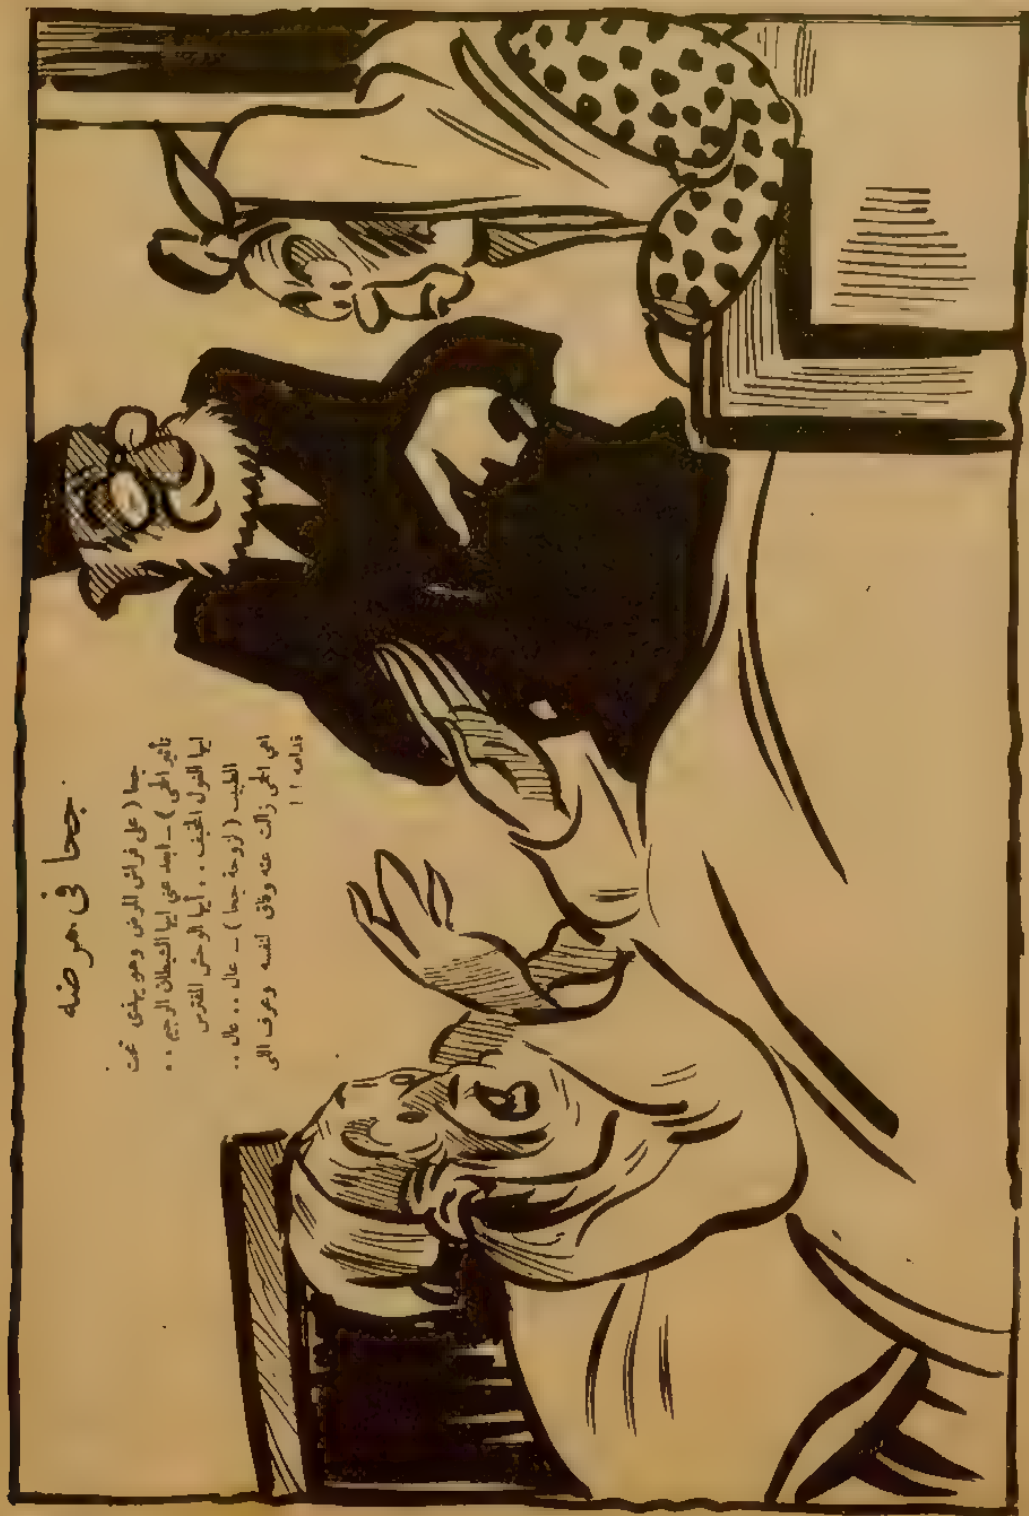 جحا فى مرضه
جحا ( على فراش المرض وهو يهذى تحت
تأثير الحمى ) – ابعد عنى ايها الشيطان الرجيم ..
ايها الغول المخيف .. أيها الوحش المفترس
الطبيب ( لزوجة جحا ) – عال .. عال ..
اهى الحمى زالت عنه وفاق لنفسه وعرف اللى
قدامه !!